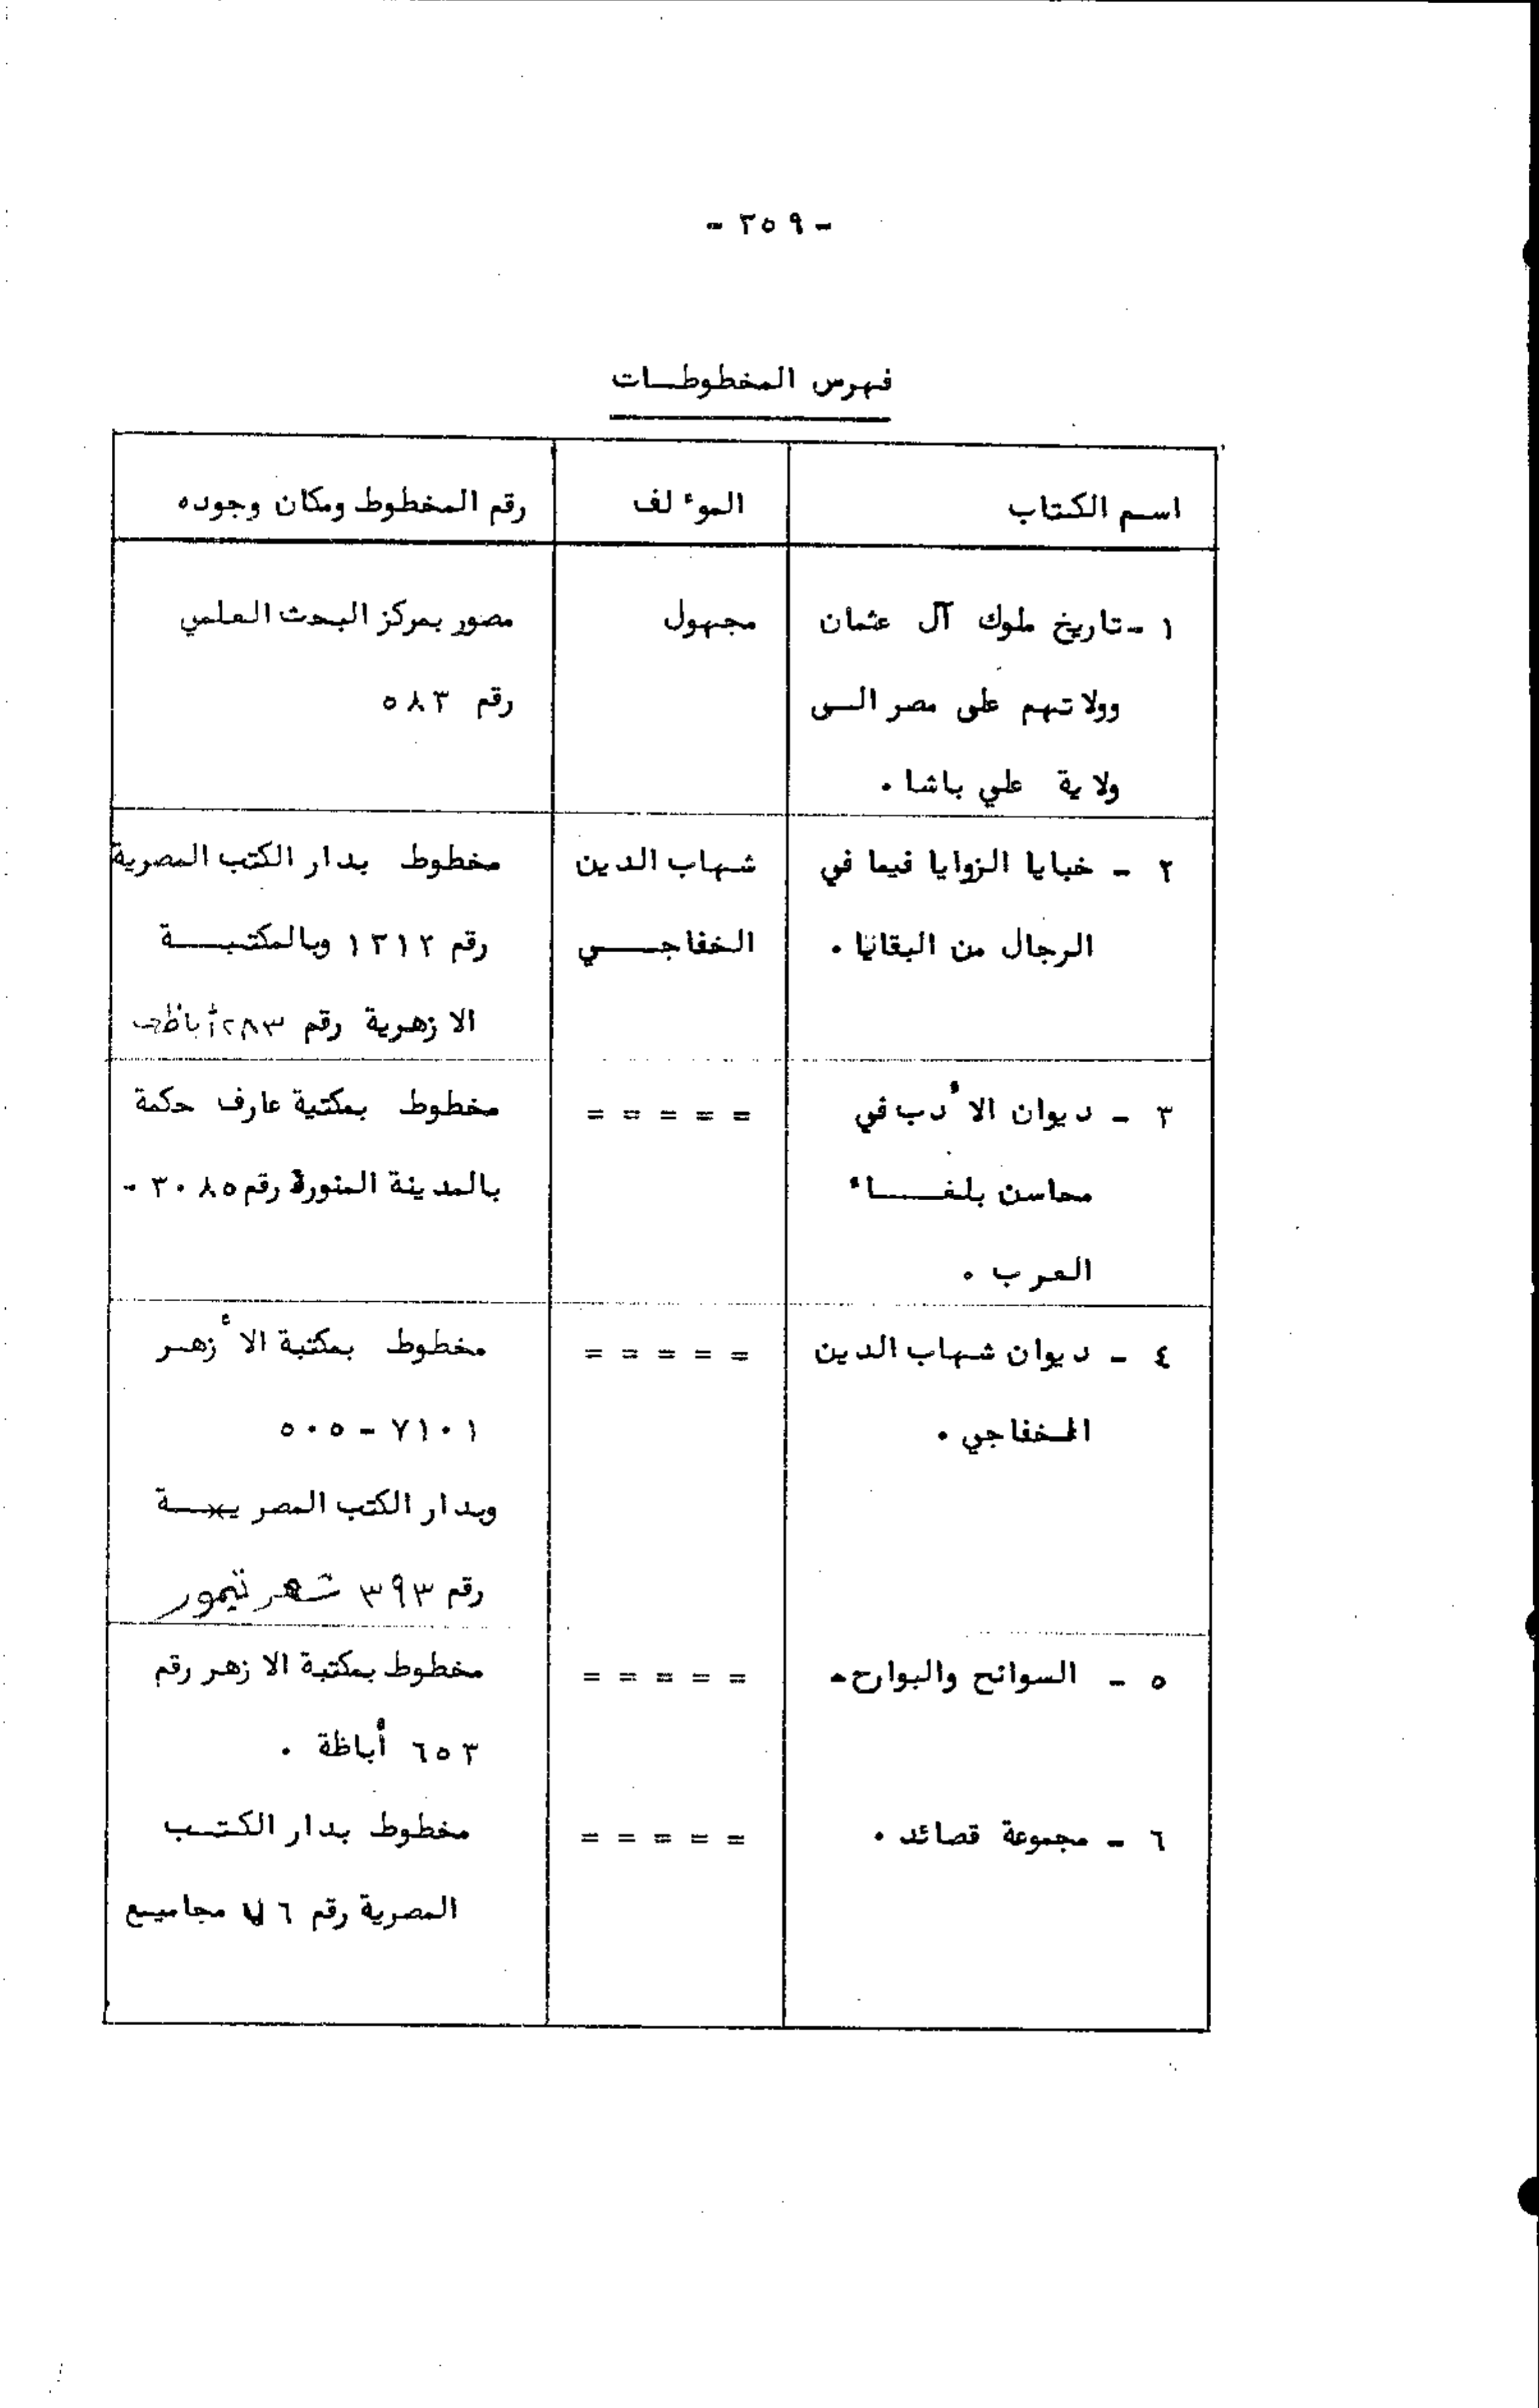 - ٣٥٩ -
فهرس المخطوطات
اسم الكتاب
المؤلف
رقم المخطوط ومكان وجوده
١ - تاريخ ملوك آل عثمان
وولاتهم على مصر الى
ولاية علي باشا .
مجهول
مصور بمركز البحث العلمي
رقم ٥٨٣
٢ - خبايا الزوايا فيما في
الرجال من البقايا .
شهاب الدين
الخفاجي
مخطوط بدار الكتب المصرية
رقم ١٣١٢ وبالمكتبة
الازهرية رقم ٢٨٣ أباظة
٣ - ديوان الأدب في
محاسن بلغاء
العرب .
= = = = =
مخطوط بمكتبة عارف حكمة
بالمدينة المنورة رقم ٣٠٨٥ -
٤ - ديوان شهاب الدين
الخفاجي .
= = = = =
مخطوط بمكتبة الأزهر
٧١٠١ - ٥٠٥
وبدار الكتب المصرية
رقم ٣٩٣ شعر تيمور
٥ - السوانح والبوارح-
= = = = =
مخطوط بمكتبة الازهر رقم
٦٥٣ أباظة .
٦ - مجموعة قصائد .
= = = = =
مخطوط بدار الكتب
المصرية رقم مجاميع